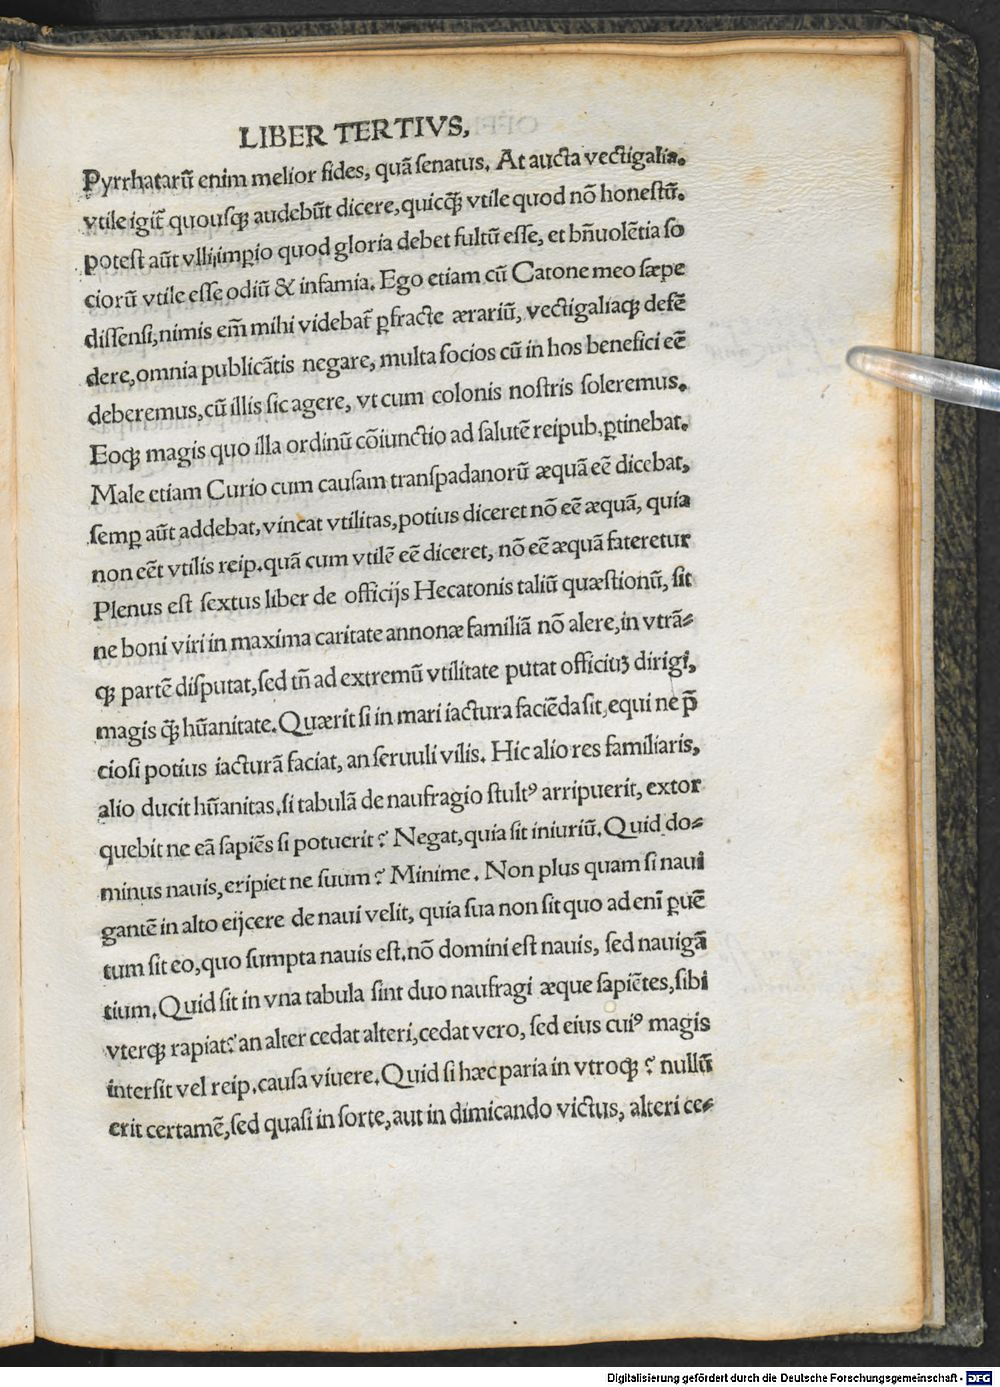 LIBER TERTIVS,
Pyrrhatarũ enim melior fides, quã ſenatus. At aucta vectigalia.
vtile igit᷑ quouſqꝫ audebũt dicere, quicq̃ꝫ vtile quod nõ honeſtũ.
poteſt aũt vlli, impio quod gloria debet fultũ eſſe, et bñuolẽtia ſo
ciorũ vtile eſſe odiũ & infamia. Ego etiam cũ Catone meo ſæpe
diſſenſi, nimis em̃ mihi videbat᷑ ꝑfracte ærariũ, vectigaliaqꝫ defẽ
dere, omnia publicãtis negare, multa ſocios cũ in hos benefici eẽ
deberemus, cũ illis ſic agere, vt cum colonis noſtris ſoleremus.
Eoqꝫ magis quo illa ordinũ cõiunctio ad ſalutẽ reipub, ꝑtinebat.
Male etiam Curio cum cauſam tranſpadanorũ æquã eẽ dicebat,
ſemꝑ aũt addebat, vincat vtilitas, potius diceret nõ eẽ æquã, quia
non eẽt vtilis reip. quã cum vtilẽ eẽ diceret, nõ eẽ æquã fateretur
Plenus eſt ſextus liber de officijs Hecatonis taliũ quæſtionũ, ſit
ne boni viri in maxima caritate annonæ familiã nõ alere, in vtrã⸗
qꝫ partẽ diſputat, ſed tñ ad extremũ vtilitate putat officiuꝫ dirigi,
magis q̃ꝫ hũanitate. Quærit ſi in mari iactura faciẽda ſit, equi ne p̃
cioſi potius iacturã faciat, an ſeruuli vilis. Hic alio res familiaris,
alio ducit hũanitas, ſi tabulã de naufragio ſtultꝰ arripuerit, extor
quebit ne eã ſapiẽs ſi potuerit? Negat, quia ſit iniuriũ. Quid do⸗
minus nauis, eripiet ne ſuum? Minime. Non plus quam ſi naui
gantẽ in alto eijcere de naui velit, quia ſua non ſit quo ad enĩ ꝑuẽ
tum ſit eo, quo ſumpta nauis eſt. nõ domini eſt nauis, ſed nauigã
tium. Quid ſit in vna tabula ſint duo naufragi æque ſapiẽtes, ſibi
vterqꝫ rapiat? an alter cedat alteri, cedat vero, ſed eius cuiꝰ magis
interſit vel reip. cauſa viuere. Quid ſi hæc paria in vtroqꝫ? nullũ
erit certamẽ, ſed quaſi in ſorte, aut in dimicando victus, alteri ce⸗
Digitalisierung gefördert durch die Deutsche Forschungsgemeinschaft - DFG